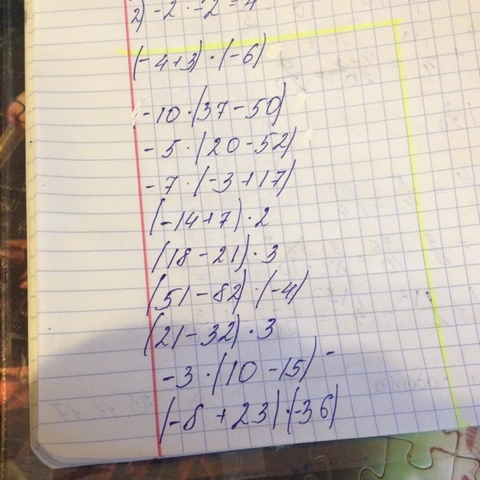 2) -2 · -2 = 4
(-4+3) · (-6)
-10 · (37-50)
-5 · (20-52)
-7 · (-3+17)
(-14+7) · 2
(18-21) · 3
(51-82) · (-4)
(21-32) · 3
-3 · (10-15)
(-8+23) · (-36)